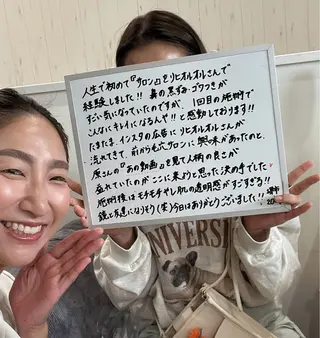 人生で初めて『サロン』をリヒオルオルさんで
経験しました!! 鼻の黒ずみ・ゴワつきが
すごい気になっていたのですが、1回目の施術で
こんなにキレイになるんや!!と感動しております!!
たまたま、インスタの広告にリヒオルオルさんが
流れてきて、前から毛穴サロンに興味があったのと、
原さんの『あの動画』を見て人柄の良さが
溢れていたのがここに来ようと思った決め手でした
施術後はモチモチやし肌の透明感がすごすぎる!!
鏡と友達になりそう(笑)今日はありがとうございました!!
堺市
20
UNIVERSI